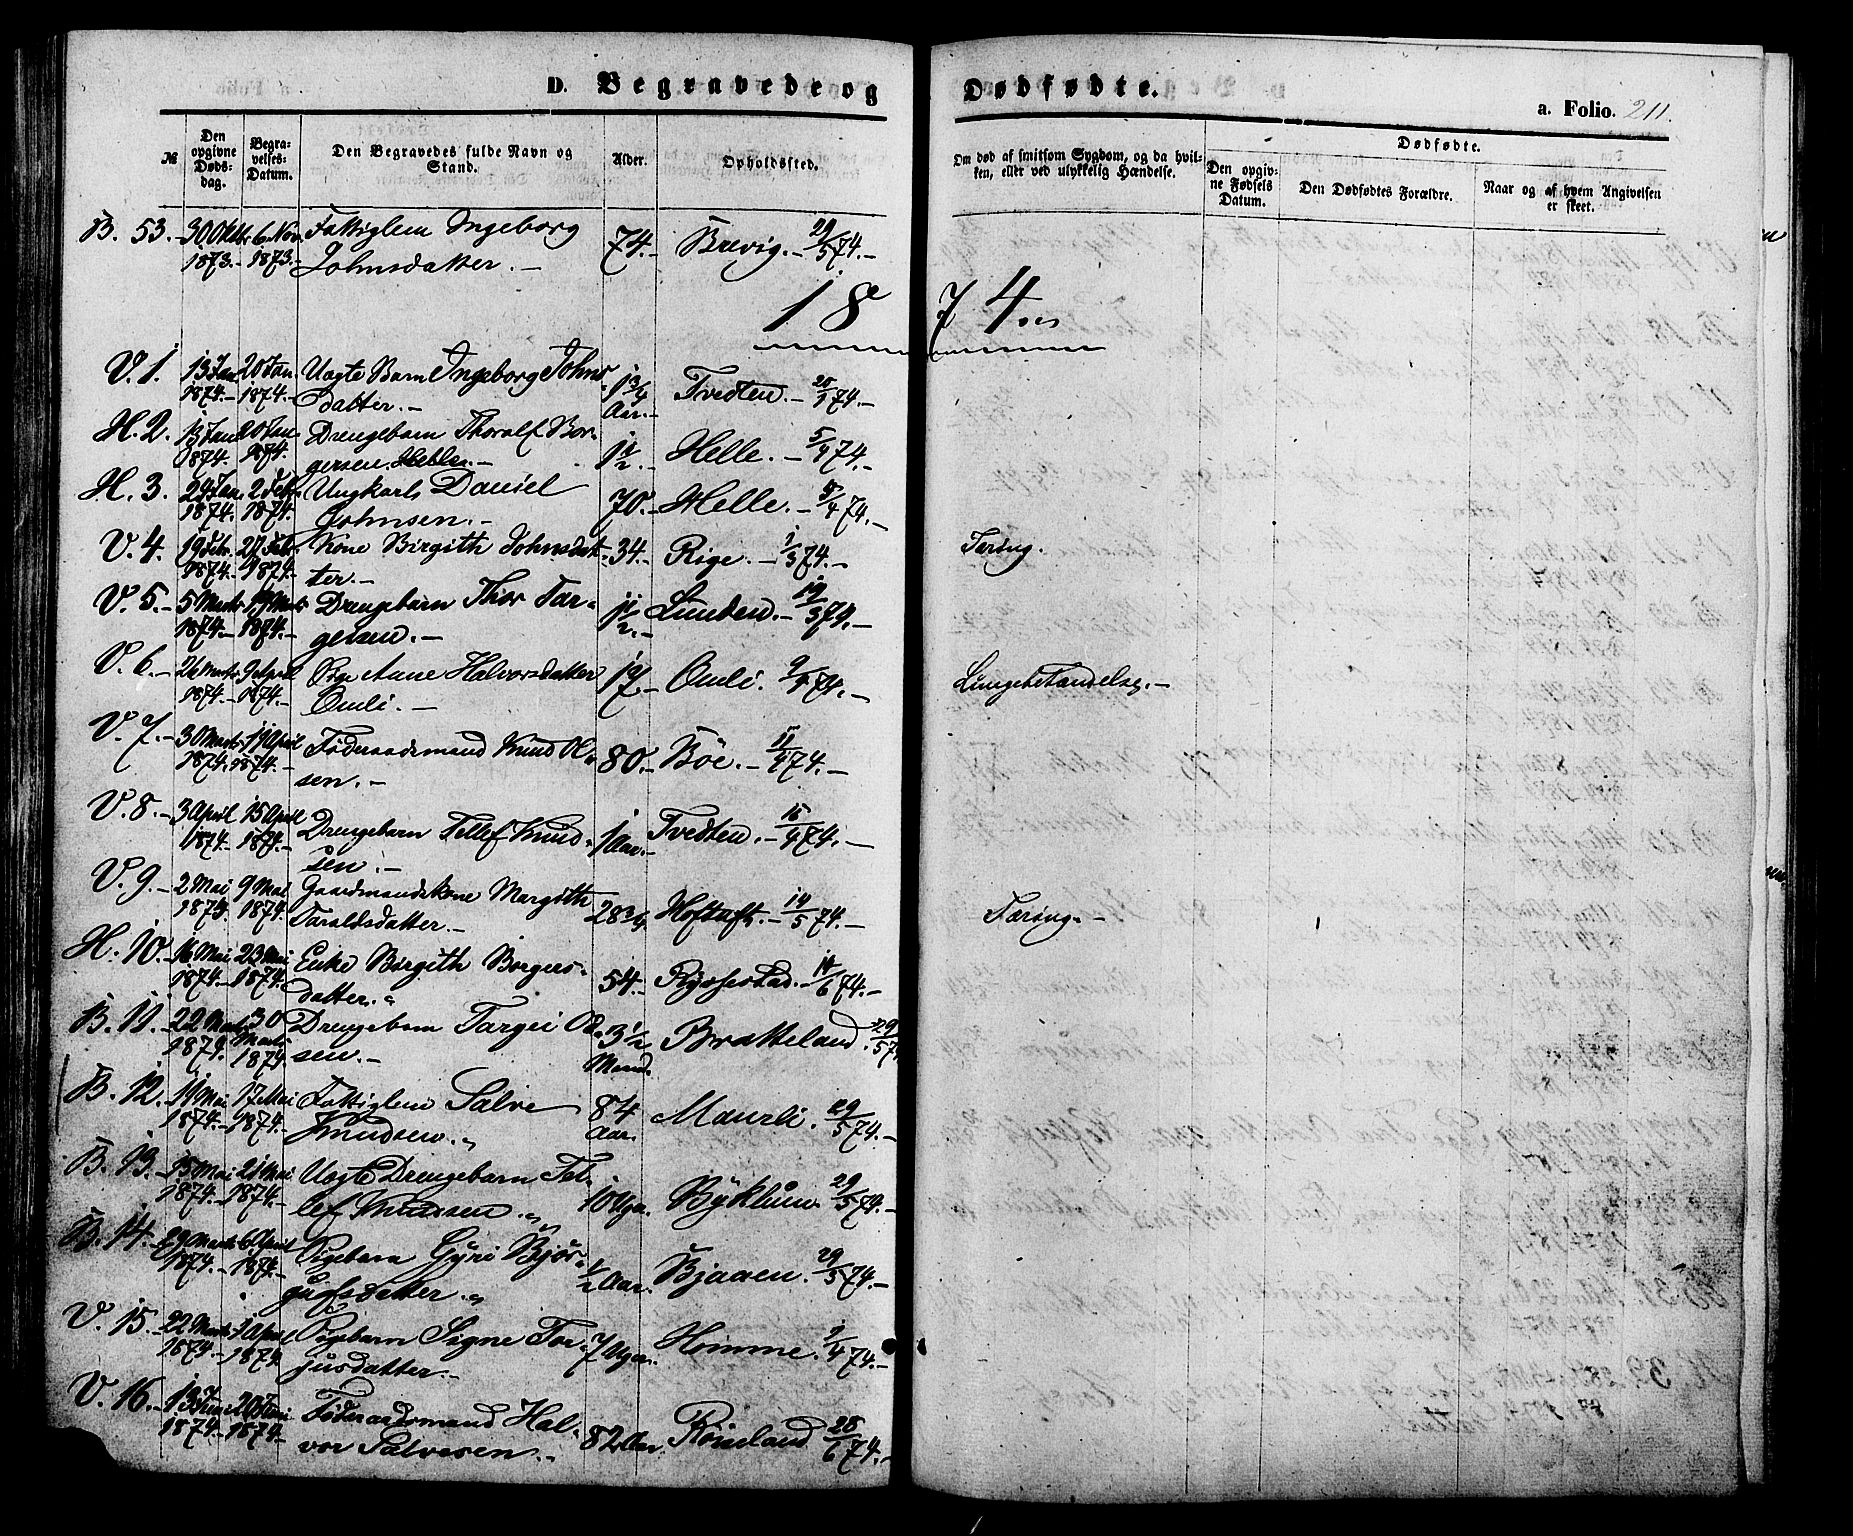 D. Begravede og Dødfødte.
a. Folio. 211.
№
Den opgivne Døds-dag.
Begra-velses-Datum.
Den Begravedes fulde Navn og Stand.
Alder.
Opholdssted.
Om død af smitsom Sygdom, og da hvil-ken, eller ved ulykkelig Hændelse.
Dødfødte.
Den opgiv-ne Fødsels Datum.
Den Dødfødtes Forældre.
Naar og af hvem Angivelsen er skeet.
B. 53. 30 Oktbr 6. Nov. Fattiglem Ingeborg 74. Brevig. 29/5 74.
1873. 1873. Johnsdatter.
1874
V. 1. 13 Jan 20 Jan. Uægte Barn Ingeborg Johns 1 3/4 Tvedten. 20/1 74.
1874. 1874. datter. Aar.
H. 2. 13 Jan 20 Jan Drengebarn Thoralf Bor- 1 1/2 Helle. 5/4 74.
1874 1874. gersen Helle.
H. 3. 24 Jan 2 Feb Ungkarl Daniel 70. Helle. 5/4 74.
1874. 1874. Johnsen.
V. 4. 19 Febr. 27 Febr Kone Birgith Johnsdat- 34. Rige. 1/3 74. Tæring.
1874. 1874. ter.
V. 5. 5 Marts 19 Marts Drengebarn Thor Tar- 1 1/2. Lunden. 19/3 74.
1874. 1874. gesen.
V. 6. 26 Marts 9 April Pige Aane Halvorsdatter 17 Omli. 9/4 74. Lungebetændelse.
1874. 1874. Omli.
V. 7. 30 Marts 11 April Føderaadsmand Knud Ol- 80. Böe. 11/4 74.
1874. 1874. sen.
V. 8. 3 April 15 April Drengebarn Tellef Knud- 1 Aar. Tvedten. 15/4 74.
1874. 1874. sen.
V. 9. 2 Mai 9 Mai Gaardmandskone Margith 28 3/4 Hoftuft. 14/5 74. Tæring.
1874. 1874. Taraldsdatter.
H. 10. 16 Mai 23 Mai Enke Birgith Borgers- 54. Rysstad. 14/6 74.
1874. 1874. datter.
B. 11. 22 Marts 30 Marts Drengebarn Targei Ol- 3 1/2 Bratteland. 29/5 74
1874. 1874. sen. Maand.
B. 12. 11 Mai 17 Mai Fattiglem Salve 84 Maurli. 29/5 74.
1874. 1874. Knudsen. Aar.
B. 13. 15 Mai 21 Mai Uægte Drengebarn Tel- 10 Uger. Byklum. 29/5 74.
1874. 1874. lef Knudsen.
B. 14. 29 Marts 6 April Pigebarn Gyri Bjør- 1/2 Aar. Bjaaen. 29/5 74.
1874. 1874. gufsdatter.
V. 15. 22 Marts 1 April Pigebarn Signe Tor- 7 Uger. Homme. 9/4 74.
1874. 1874. jusdatter.
V. 16. 13 Juni 20 Juni Føderaadsmand Hal- 82 Aar. Röisland 28/6 74.
1874. 1874. vor Salvesen.